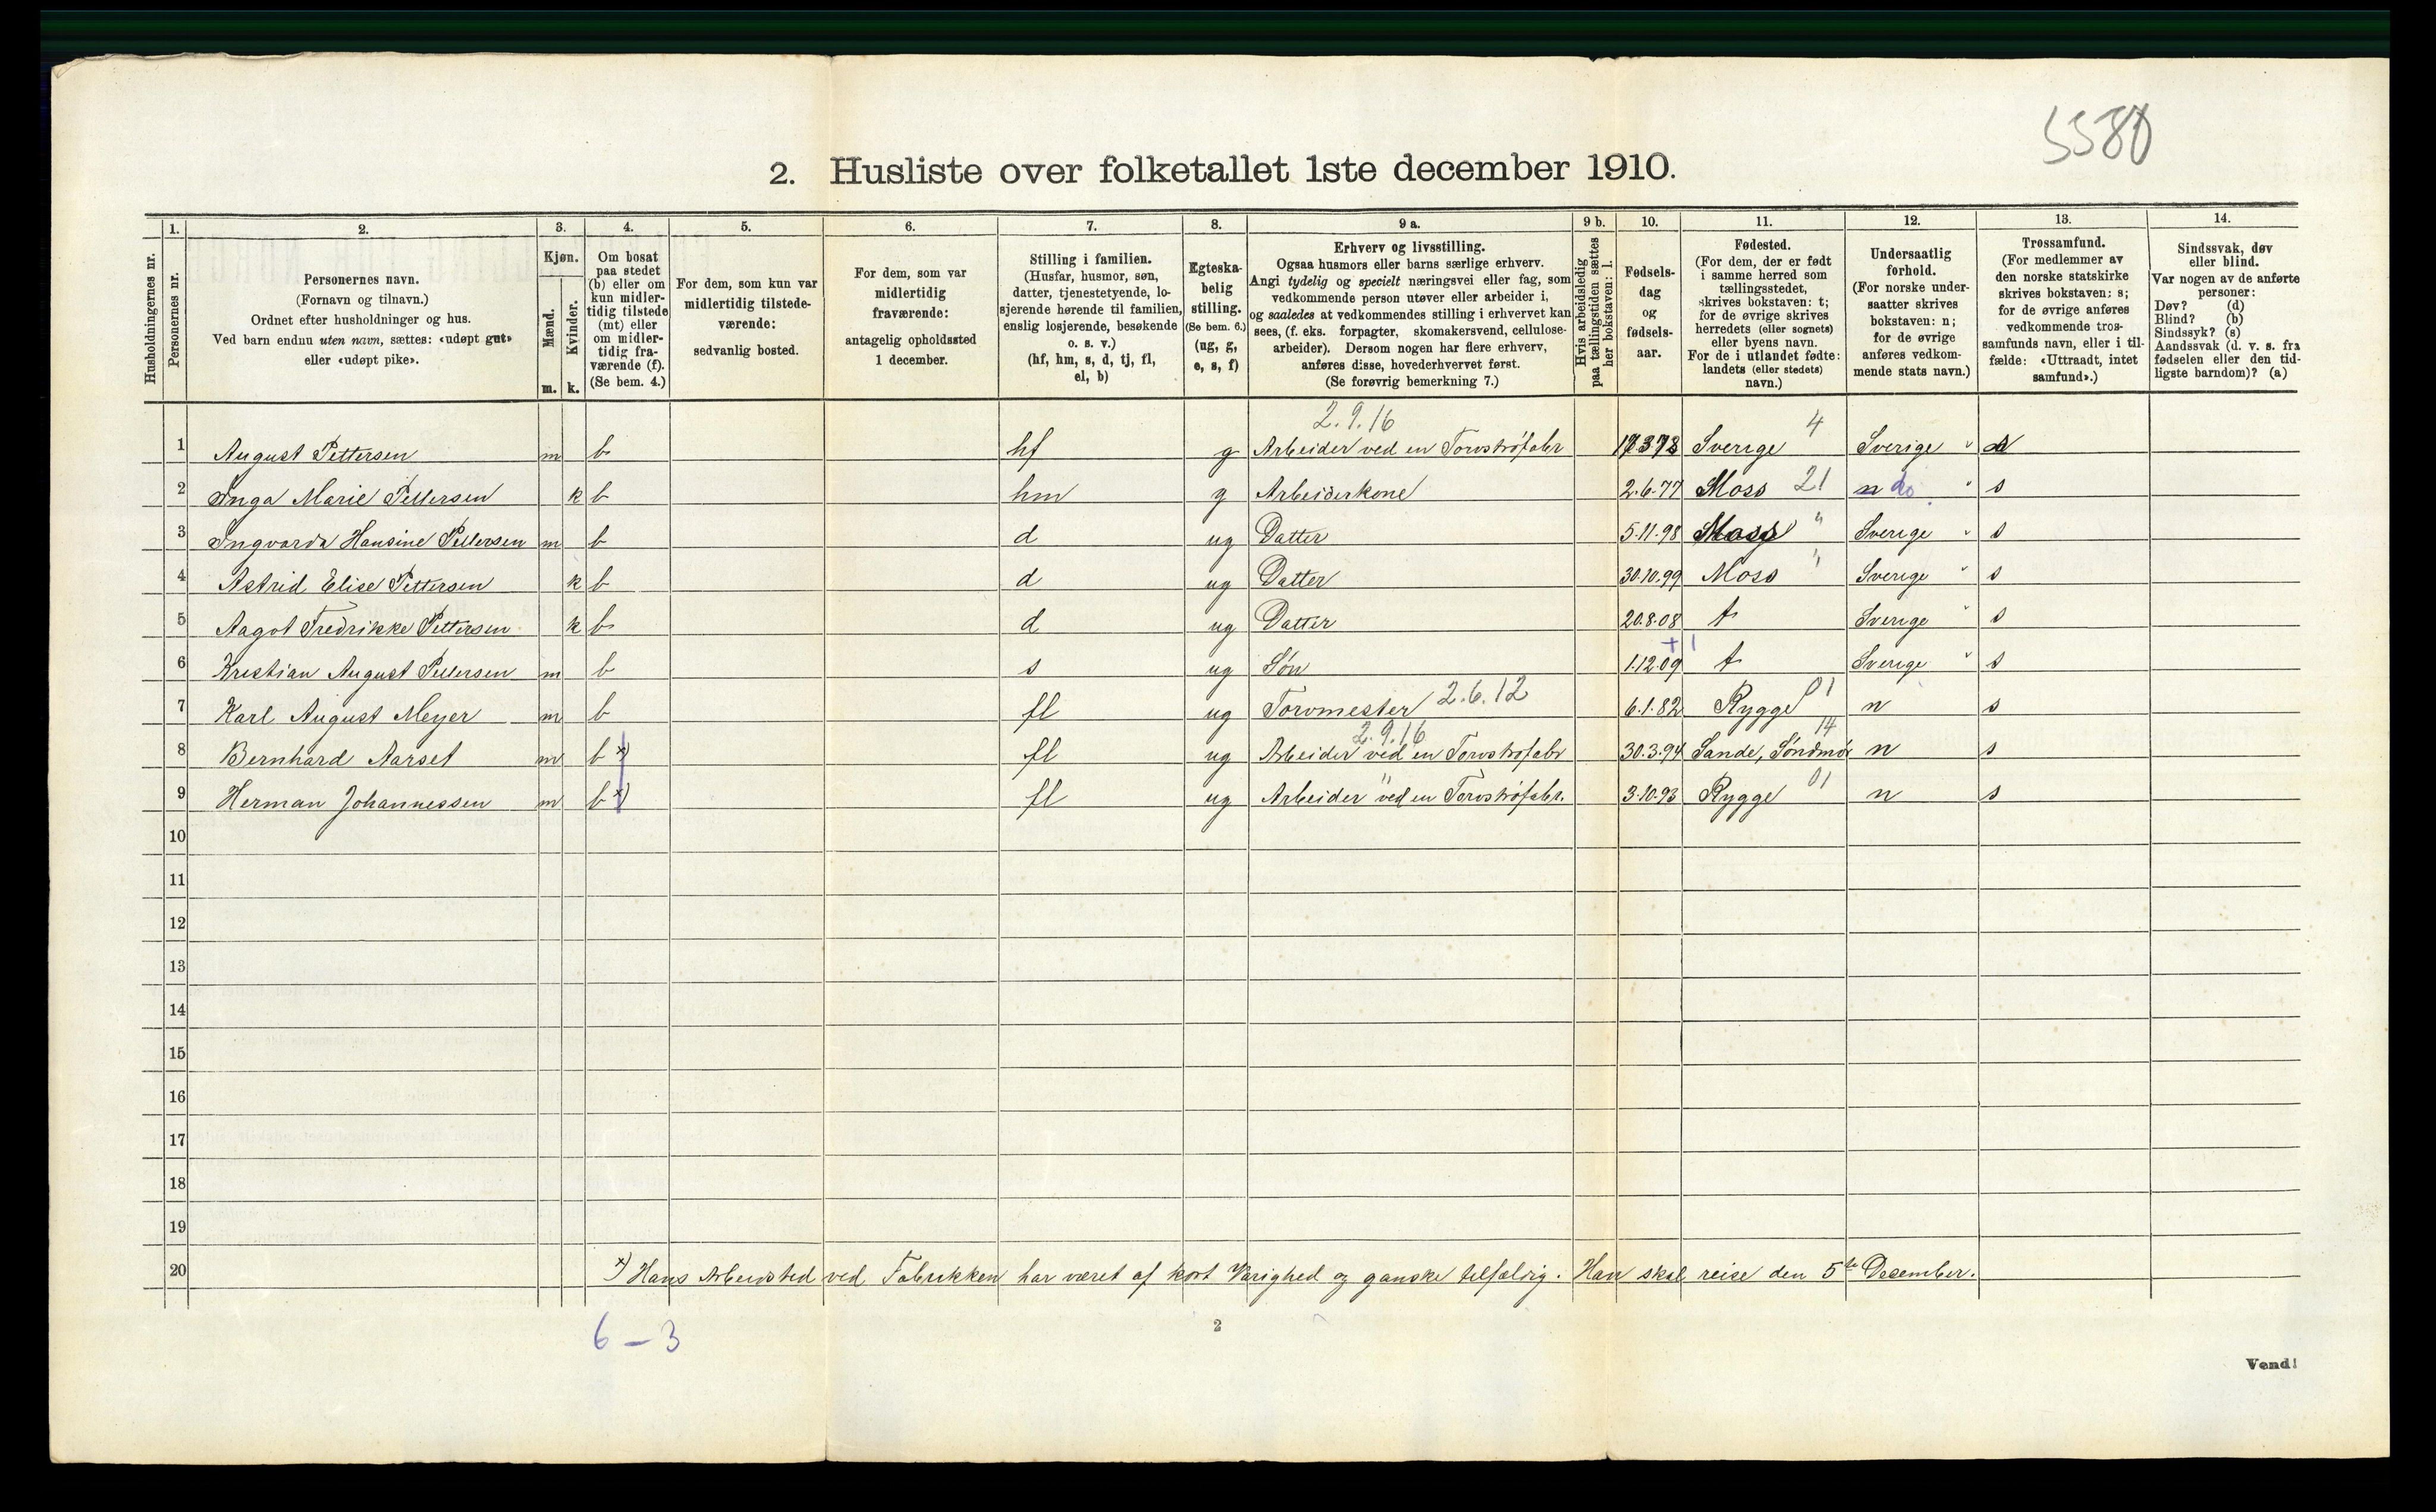 5580
2. Husliste over folketallet 1ste december 1910.
Husholdningernes nr.
1. Personernes nr.
2. Personernes navn. (Fornavn og tilnavn.) Ordnet efter husholdninger og hus. Ved barn endnu uten navn, sættes: «udøpt gut» eller «udøpt pike».
3. Kjøn. Mænd. m. Kvinder. k.
4. Om bosat paa stedet (b) eller om kun midlertidig tilstede (mt) eller om midlertidig fraværende (f). (Se bem. 4.)
5. For dem, som kun var midlertidig tilstedeværende: sedvanlig bosted.
6. For dem, som var midlertidig fraværende: antagelig opholdssted 1 december.
7. Stilling i familien. (Husfar, husmor, søn, datter, tjenestetyende, losjerende hørende til familien, enslig losjerende, besøkende o. s. v.) (hf, hm, s, d, tj, fl, el, b)
8. Egteskabelig stilling. (Se bem. 6.) (ug, g, e, s, f)
9 a. Erhverv og livsstilling. Ogsaa husmors eller barns særlige erhverv. Angi tydelig og specielt næringsvei eller fag, som vedkommende person utøver eller arbeider i, og saaledes at vedkommendes stilling i erhvervet kan sees, (f. eks. forpagter, skomakersvend, cellulosearbeider). Dersom nogen har flere erhverv, anføres disse, hovederhvervet først. (Se forøvrig bemerkning 7.)
9 b. Hvis arbeidsledig paa tællingstiden sættes her bokstaven: l.
10. Fødselsdag og fødselsaar.
11. Fødested. (For dem, der er født i samme herred som tællingsstedet, skrives bokstaven: t; for de øvrige skrives herredets (eller sognets) eller byens navn. For de i utlandet fødte: landets (eller stedets) navn.)
12. Undersaatlig forhold. (For norske undersaatter skrives bokstaven: n; for de øvrige anføres vedkommende stats navn.)
13. Trossamfund. (For medlemmer av den norske statskirke skrives bokstaven: s; for de øvrige anføres vedkommende trossamfunds navn, eller i tilfælde: «Uttraadt, intet samfund».)
14. Sindssvak, døv eller blind. Var nogen av de anførte personer: Døv? (d) Blind? (b) Sindssyk? (s) Aandssvak (d. v. s. fra fødselen eller den tidligste barndom)? (a)
2.9.16 4
1 August Pettersen m b hf g Arbeider ved en Torvströfabr Sverige Sverige "
2 Inga Marie Pettersen k b hm g Arbeiderkone 2.6.77 Moss 21 n do " s
3 Ingvarda Hansine Pettersen m b d ug Datter 5.11.98 Moss " Sverige " s
4 Astrid Elise Pettersen k b d ug Datter 30.10.99 Moss " Sverige " s
5 Aagot Fredrikke Pettersen k b d ug Datter 20.8.08 t Sverige " s
+ 1
6 Kristian August Pettersen m b s ug Søn 1.12.09 t Sverige " s
7 Karl August Meyer m b fl ug Torvmester 2.6.12 6.1.82 Rygge 01 n s
2.9.16 14
8 Bernhard Aarset m b x) fl ug Arbeider ved en Torvströfabr 30.3.94 Sande, Söndmör n s
9 Herman Johannessen m b x) fl ug Arbeider ved en Torvströfabr. 3.10.93 Rygge 01 n s
10
11
12
13
14
15
16
17
18
19
20 x) Hans Arbeidsted ved Fabrikken har været af kort Varighed og ganske tilfældig. Han skal reise den 5te Desember.
6 – 3
2
Vend!